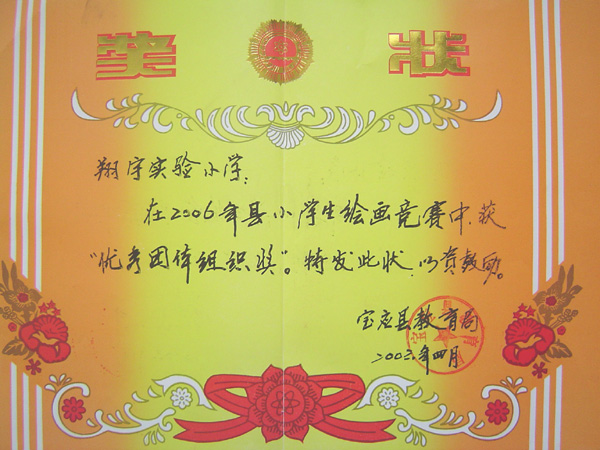 奖 状
翔宇实验小学:
在2006年县小学生绘画竞赛中,获
"优秀团体组织奖"。特发此状,以资鼓励。
宝应县教育局
四月